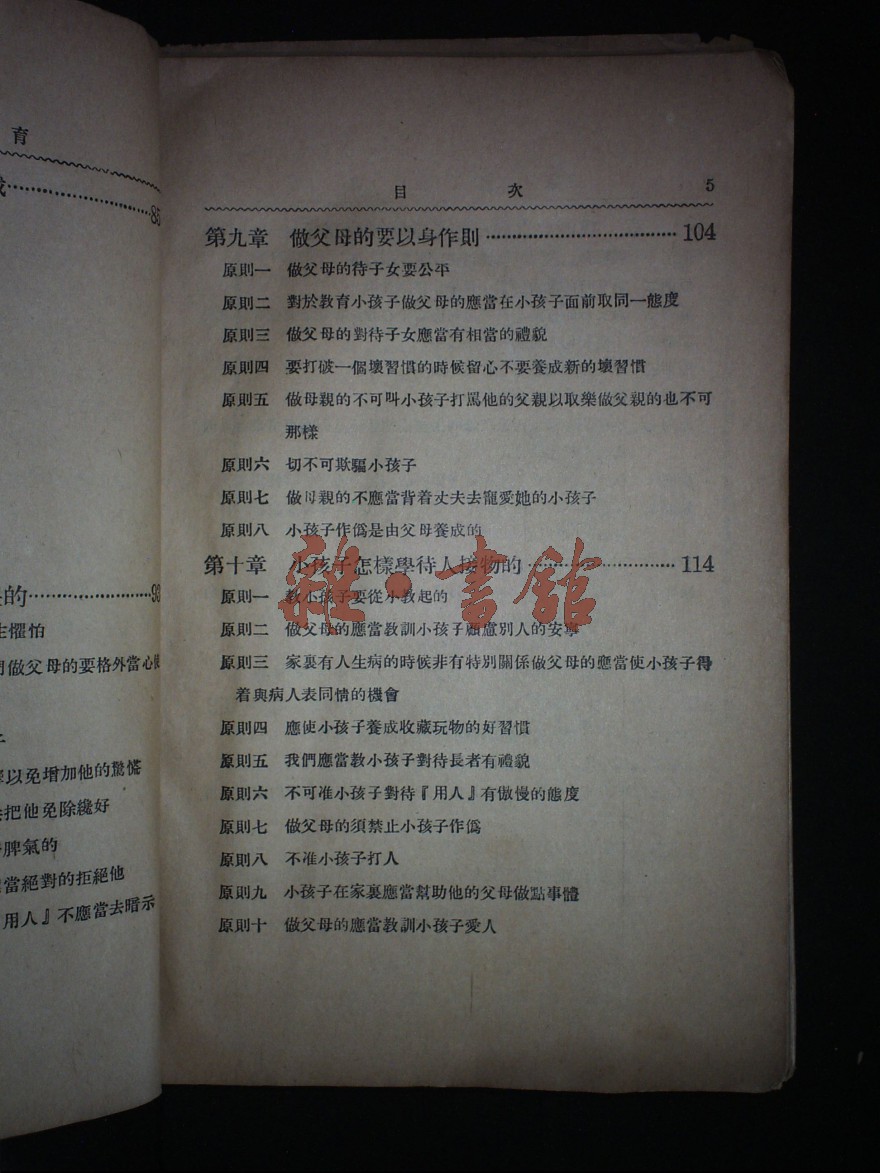 育
85
的……………………98
懼怕
們做父母的要格外當心
以免增加他的驚慌
把他免除纔好
脾氣的
當絕對的拒絕他
用人』不應當去暗示
目 次 5
第九章 做父母的要以身作則……………………………104
原則一 做父母的待子女要公平
原則二 對於教育小孩子做父母的應當在小孩子面前取同一態度
原則三 做父母的對待子女應當有相當的禮貌
原則四 要打破一個壞習慣的時候留心不要養成新的壞習慣
原則五 做母親的不可叫小孩子打罵他的父親以取樂做父親的也不可
那樣
原則六 切不可欺騙小孩子
原則七 做母親的不應當背着丈夫去寵愛她的小孩子
原則八 小孩子作僞是由父母養成的
第十章 小孩子怎樣學待人接物的……………………114
原則一 教小孩子要從小教起的
原則二 做父母的應當教訓小孩子顧慮別人的安寧
原則三 家裏有人生病的時候非有特別關係做父母的應當使小孩子得
着與病人表同情的機會
原則四 應使小孩子養成收藏玩物的好習慣
原則五 我們應當教小孩子對待長者有禮貌
原則六 不可准小孩子對待『用人』有傲慢的態度
原則七 做父母的須禁止小孩子作僞
原則八 不准小孩子打人
原則九 小孩子在家裏應當幫助他的父母做點事體
原則十 做父母的應當教訓小孩子愛人
雜·書館